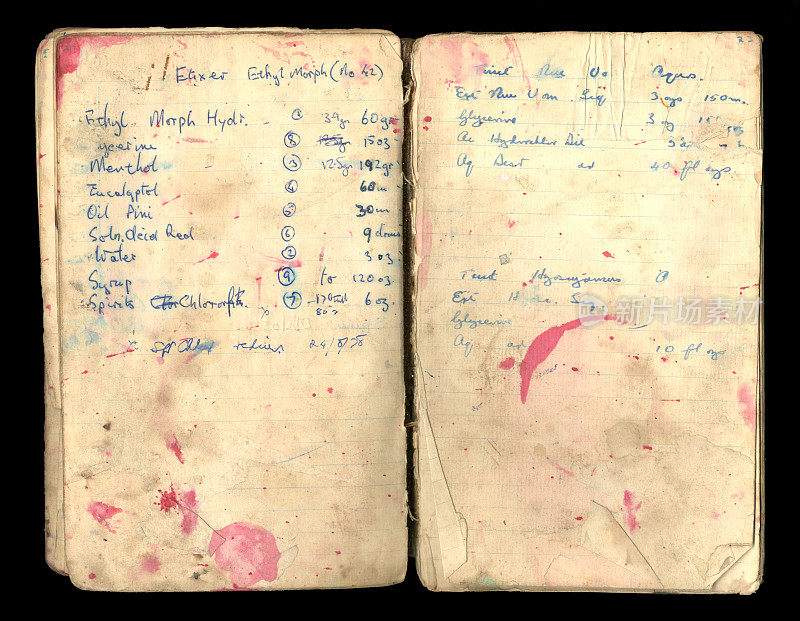 Elixer Ethyl Morph (No 42)
Ethyl Morph Hydr. ① 39gr 60gr
ycerine ⑧ 15oz
Menthol ③ 125gr 192gr
Eucalyptol ④ 60m
Oil Pini ⑤ 30m
Soln. Acid Red ⑥ 9 drms
Water ② 3 oz
Syrup ⑨ to 120 oz.
Spirits Chlorof ⑦ 6 oz.
x 29/8/58
Tinct Nux Vo Aqus.
Ext Nux Vom Liq 3 ozs 150m.
Glycerine 3 oz
Ac Hydrochlor Dil
Aq Dest ad 40 fl ozs
Tinct Hyoscyamus
Ext
Glycerine
Aq ad 10 fl ozs
iStock